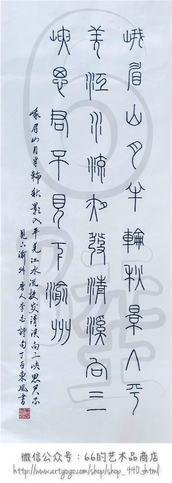 峨眉山月半輪秋影入平
羌江水流夜發清溪向三
峽思君不見下渝州
峨眉山月半輪秋影入平羌江水流夜發清溪向三峽思君不
見下渝州 唐人李白詩句丁酉東風書
微信公众号：66的艺术品商店
http://www.artgogo.com/shop/shop_440.html